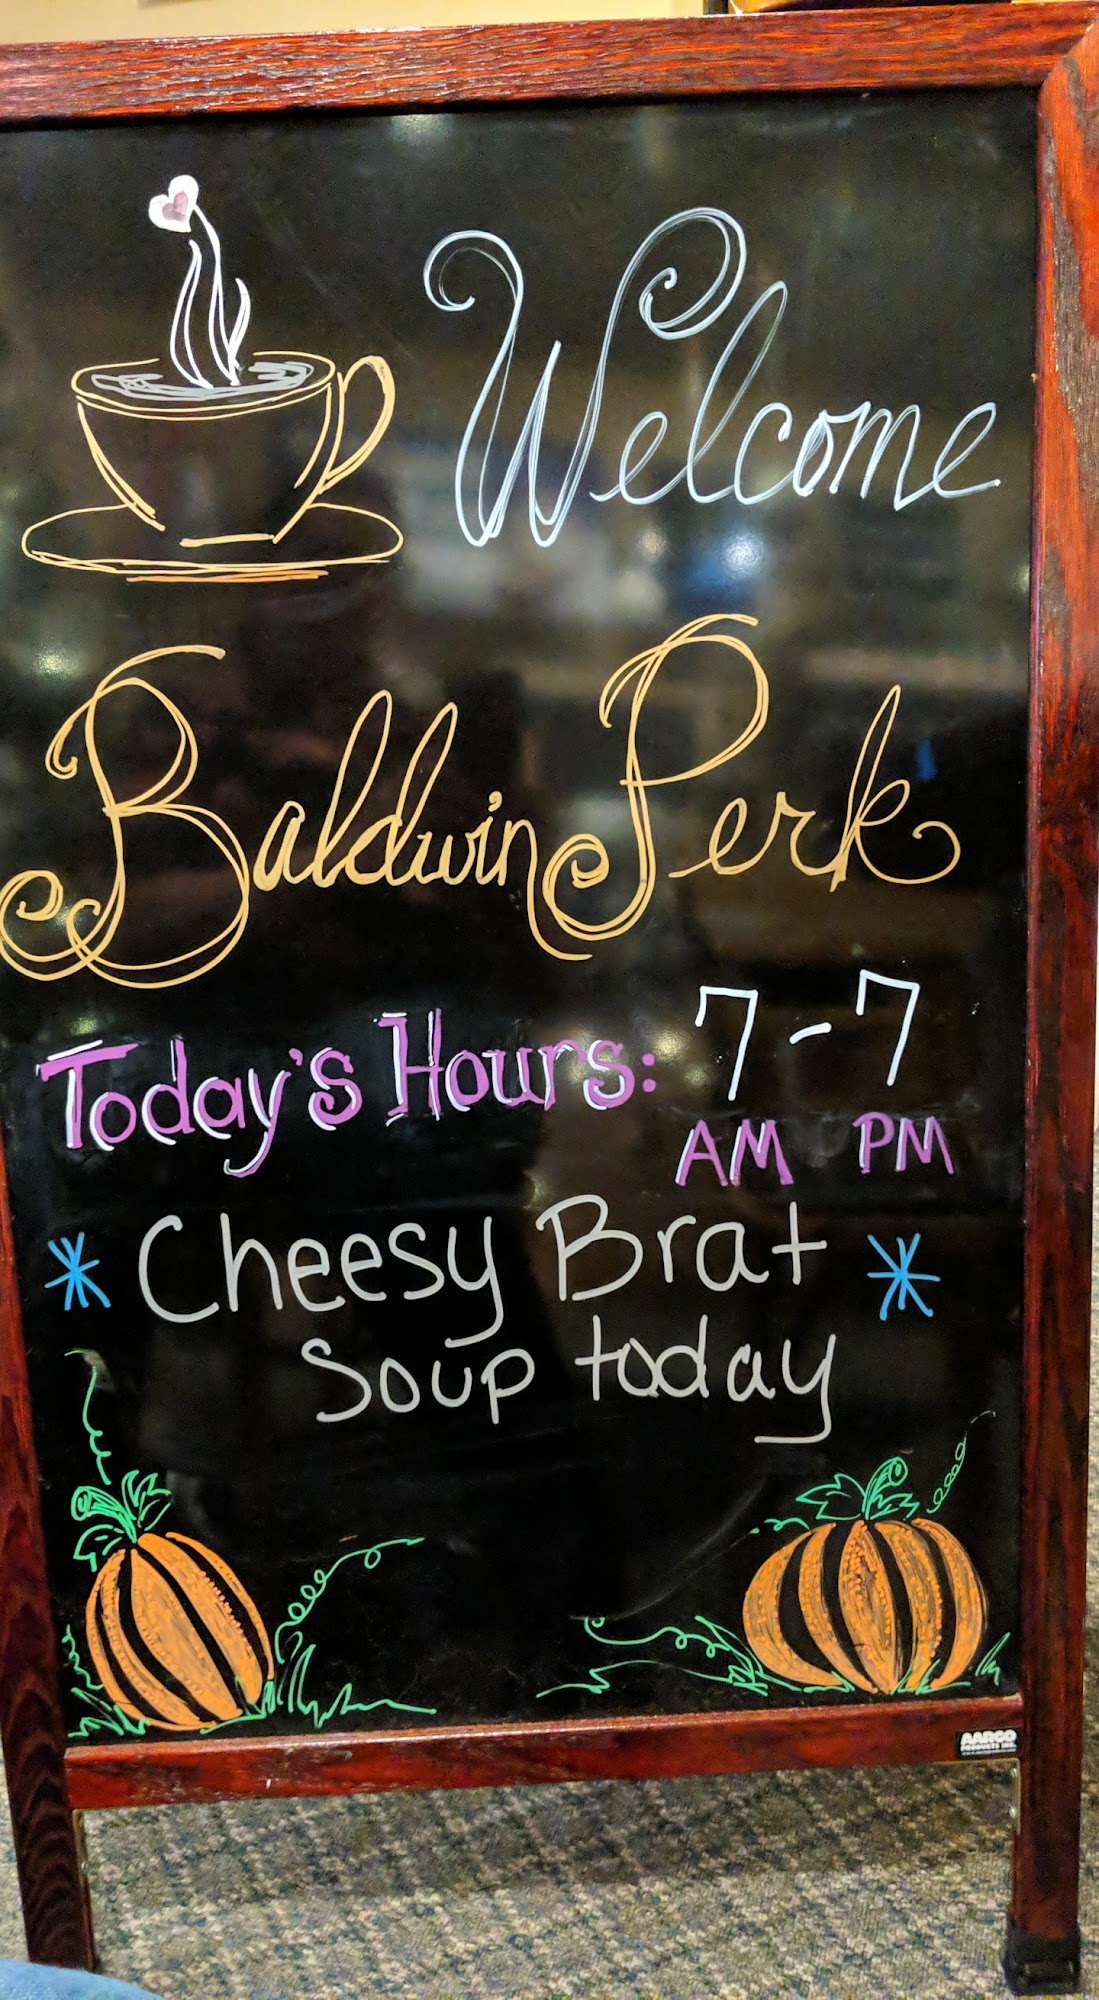 Welcome
Baldwin Perk
Today's Hours: 7-7
AM PM
* Cheesy Brat *
Soup today
AARCO
PRODUCTS INC.